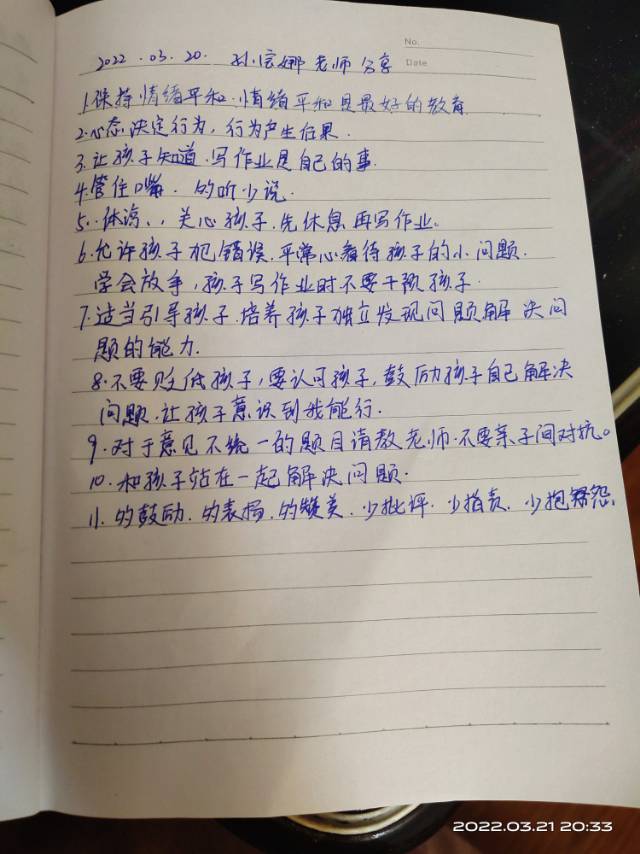 No.
Date
2022.03.20. 孙宏娜老师分享
1.保持情绪平和.情绪平和是最好的教育
2.心态决定行为,行为产生后果.
3.让孩子知道.写作业是自己的事.
4.管住嘴. 的听少说.
5..体谅、、关心孩子.先休息再写作业。
6.允许孩子犯错误.平常心看待孩子的小问题.
学会放手,孩子写作业时不要干预孩子.
7.适当引导孩子.培养孩子独立发现问题解决问
题的能力.
8.不要贬低孩子,要认可孩子,鼓励孩子自己解决
问题.让孩子意识到我能行.
9.对于意见不统一的题目请教老师.不要亲子间对抗。
10.和孩子站在一起解决问题.
11.的鼓励.的表扬.的赞美.少批评.少指责.少抱怨.
2022.03.21 20:33